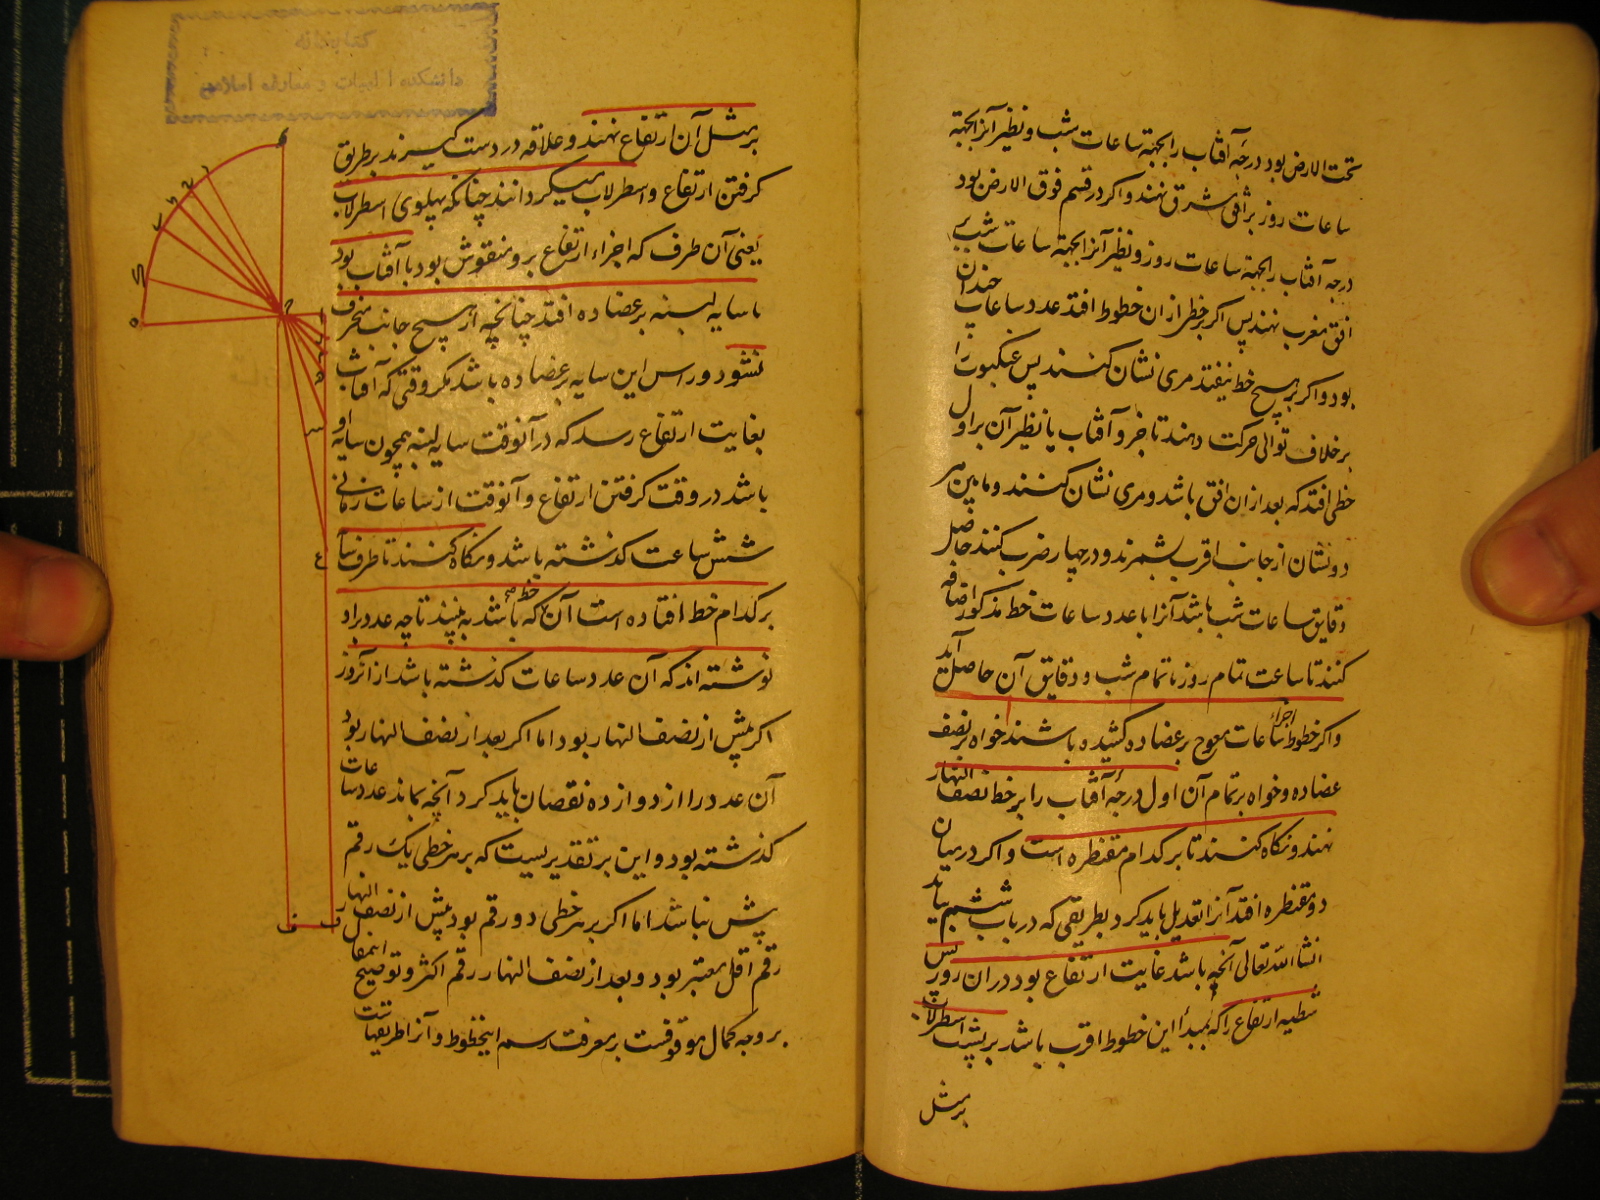 تحت الارض بود درجه آفتاب را بجهة ساعات شب و نظیر آنرا بجهة
ساعات روز بر افق مشرق نهند و اکر در قسم فوق الارض بود
درجه آفتاب را بجهة ساعات روز و نظیر آنرا بجهة ساعات شب بر
افق مغرب نهند پس اکر بر خطی از ان خطوط افتد عدد ساعات چندان
بود و اکر بر هیچ خط نیفتد مری نشان کنند پس عنکبوت را
بر خلاف توالی حرکت دهند تا جزو آفتاب یا نظیر آن بر اول
خطی افتد که بعد از ان افق باشد و مری نشان کنند و مابین هر
دو نشان از جانب اقرب بشمرند و در چهار ضرب کنند حاصل
دقایق ساعات شب باشد آنرا با عدد ساعات خط مذکور اضافه
کنند تا ساعت تمام روز یا تمام شب و دقایق آن حاصل آید
و اکر خطوط اجزاء ساعات معوج بر عضاده کشیده باشند خواه بر نصف
عضاده و خواه بر تمام آن اول درجه آفتاب را بر خط نصف النهار
نهند و نکاه کنند تا بر کدام مقنطره است و اکر در میان
دو مقنطره افتد آنرا تعدیل باید کرد بطریقی که در باب ششم بیاید
انشاالله تعالی آنچه باشد غایت ارتفاع بود در ان روز پس
شظیه ارتفاع را که بمبدأ این خطوط اقرب باشد بر پشت اسطرلاب
بر مثل
کتابخانه
دانشکده الهیات و معارف اسلامی
بر مثل آن ارتفاع نهند و علاقه در دست کیرند بر طریق
کرفتن ارتفاع و اسطرلاب میکردانند چنانکه پهلوی اسطرلاب
یعنی آن طرف که اجزاء ارتفاع برو منقوش بود با آفتاب بود
تا سایه لبنه بر عضاده افتد چنانچه از هیچ جانب منحرف
نشود و راس این سایه بر عضاده باشد مکر وقتی که آفتاب
بغایت ارتفاع رسد که در آنوقت سایه لبنه همچون سایه او
باشد در وقت کرفتن ارتفاع و آنوقت از ساعات زمانی
شش ساعت کذشته باشد و نکاه کنند تا طرف سایه
بر کدام خط افتاده است آن خط که باشد به بینند تا چه عدد برو
نوشته اند که آن عدد ساعات کذشته باشد از آنروز
اکر پیش از نصف النهار بود اما اکر بعد از نصف النهار بود
آن عدد را از دوازده نقصان باید کرد آنچه بماند عدد ساعات
کذشته بود و این بر تقدیریست که بر هر خطی یک رقم
پیش نباشد اما اکر بر هر خطی دو رقم بود پیش از نصف النهار
رقم اقل معتبر بود و بعد از نصف النهار رقم اکثر و توضیح
بر وجه کمال موقوفست بر معرفت رسم اینخطوط و آنرا طریقهاست